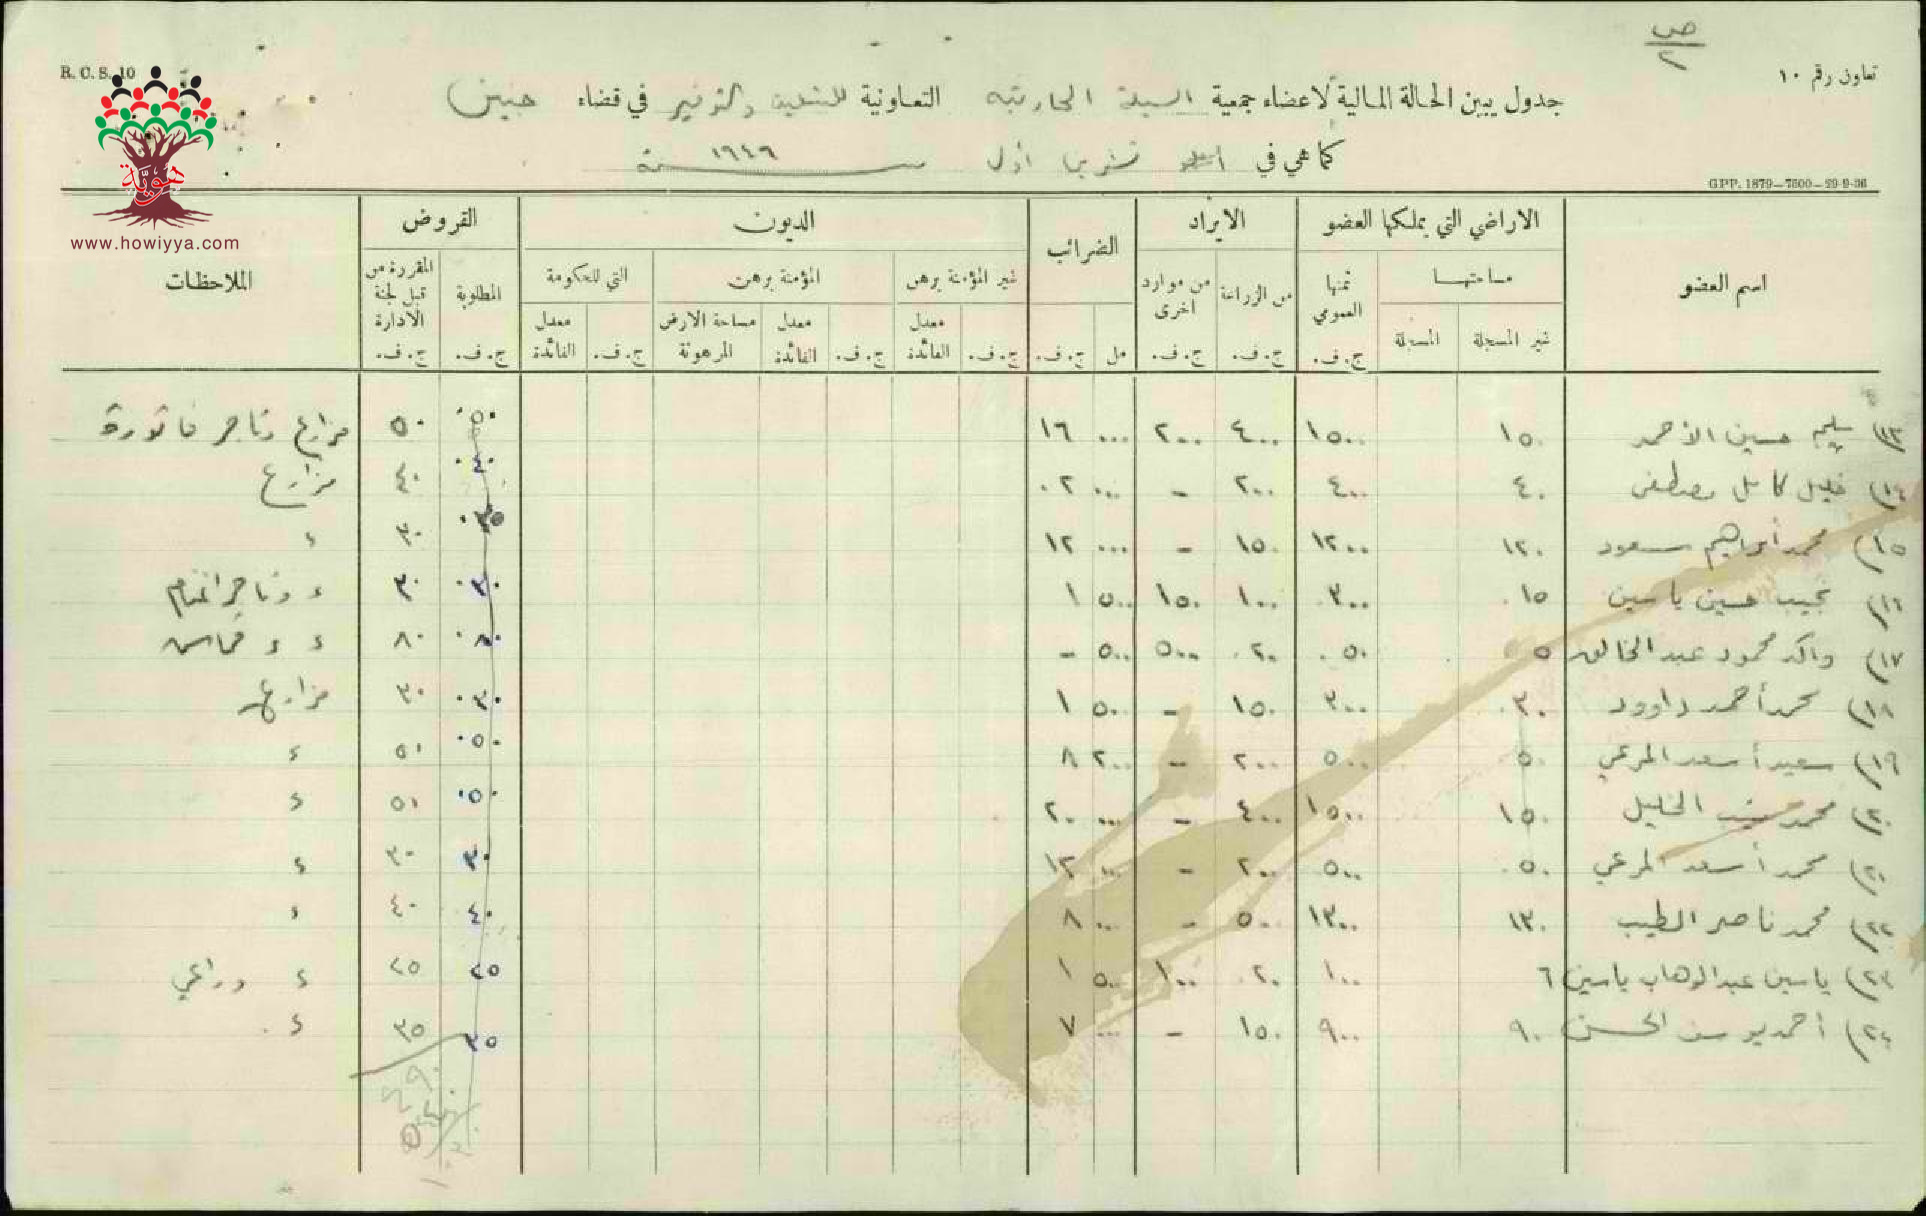 ص ٢
R. C. S. 10
تعاون رقم ١٠
جدول يبين الحالة المالية لاعضاء جمعية السيلة الحارثيه التعاونية للتسليف والتوفير في قضاء جنين
كما هي في تشرين أول سنة ١٩٤٦
GPP. 1879—7500—29-9-36
هوية
www.howiyya.com
اسم العضو الاراضي التي يملكها العضو الايراد الضرائب الديون القروض الملاحظات
مساحتها ثمنها العمومي من الزراعة من موارد اخرى غير المؤمنة برهن المؤمنة برهن التي للحكومة المطلوبة المقررة من قبل لجنة الادارة
غير المسجلة المسجلة ج. ف. ج. ف. ج. ف. مل ج. ف. ج. ف. معدل الفائدة ج. ف. معدل الفائدة مساحة الارض المرهونة ج. ف. معدل الفائدة ج. ف. ج. ف.
١٣) سليم حسين الأحمد ١٥٠ ١٥٠٠ ٤٠٠ ٢٠٠ ٠٠٠ ١٦ ٥٠ ٥٠ مزارع وتاجر فاتورة
١٤) خليل كامل مصطفى ٤٠ ٤٠٠ ٢٠٠ - ٠٠٠ ٢ ٤٠ ٤٠ مزارع
١٥) محمد أبراهيم سعود ١٢٠ ١٢٠٠ ١٥٠ - ٠٠٠ ١٢ ٣٥ ٣٠ ء
١٦) نجيب حسين ياسين ١٥ ٣٠٠ ١٠٠ ١٥٠ ٥٠٠ ١ ٣٠ ٣٠ ء وتاجر اغنام
١٧) واكد محمود عبد الخالق ٥ ٥٠ ٢٠ ٥٠٠ ٥٠٠ - ٨٠ ٨٠ ء ء
١٨) محمد أحمد داوود ٣٠ ٣٠٠ ١٥٠ - ٥٠٠ ١ ٣٠ ٣٠ مزارع
١٩) سعيد أسعد المرعي ٥٠ ٥٠٠ ٢٠٠ - ٢٠٠ ٨ ٥٠ ٥١ ء
٢٠) محمد الخليل ١٥٠ ١٥٠٠ ٤٠٠ - ٠٠٠ ٢٠ ٥٠ ٥١ ء
محمد أسعد المرعي ٥٠ ٥٠٠ ٢٠٠ - ٠٠٠ ١٢ ٣٠ ٣٠ ء
٢٢) محمد ناصر الطيب ١٣٠ ١٣٠٠ ٥٠٠ - ٠٠٠ ٨ ٤٠ ٤٠ ء
٢٣) ياسين عبد الوهاب ياسين ٦ ١٠٠ ٢٠ ١٠٠ ٥٠٠ ١ ٢٥ ٢٥ ء وراعي
٢٤) أحمد يوسف الحسن ٩٠ ٩٠٠ ١٥٠ - ٠٠٠ ٧ ٣٥ ٣٥ ء